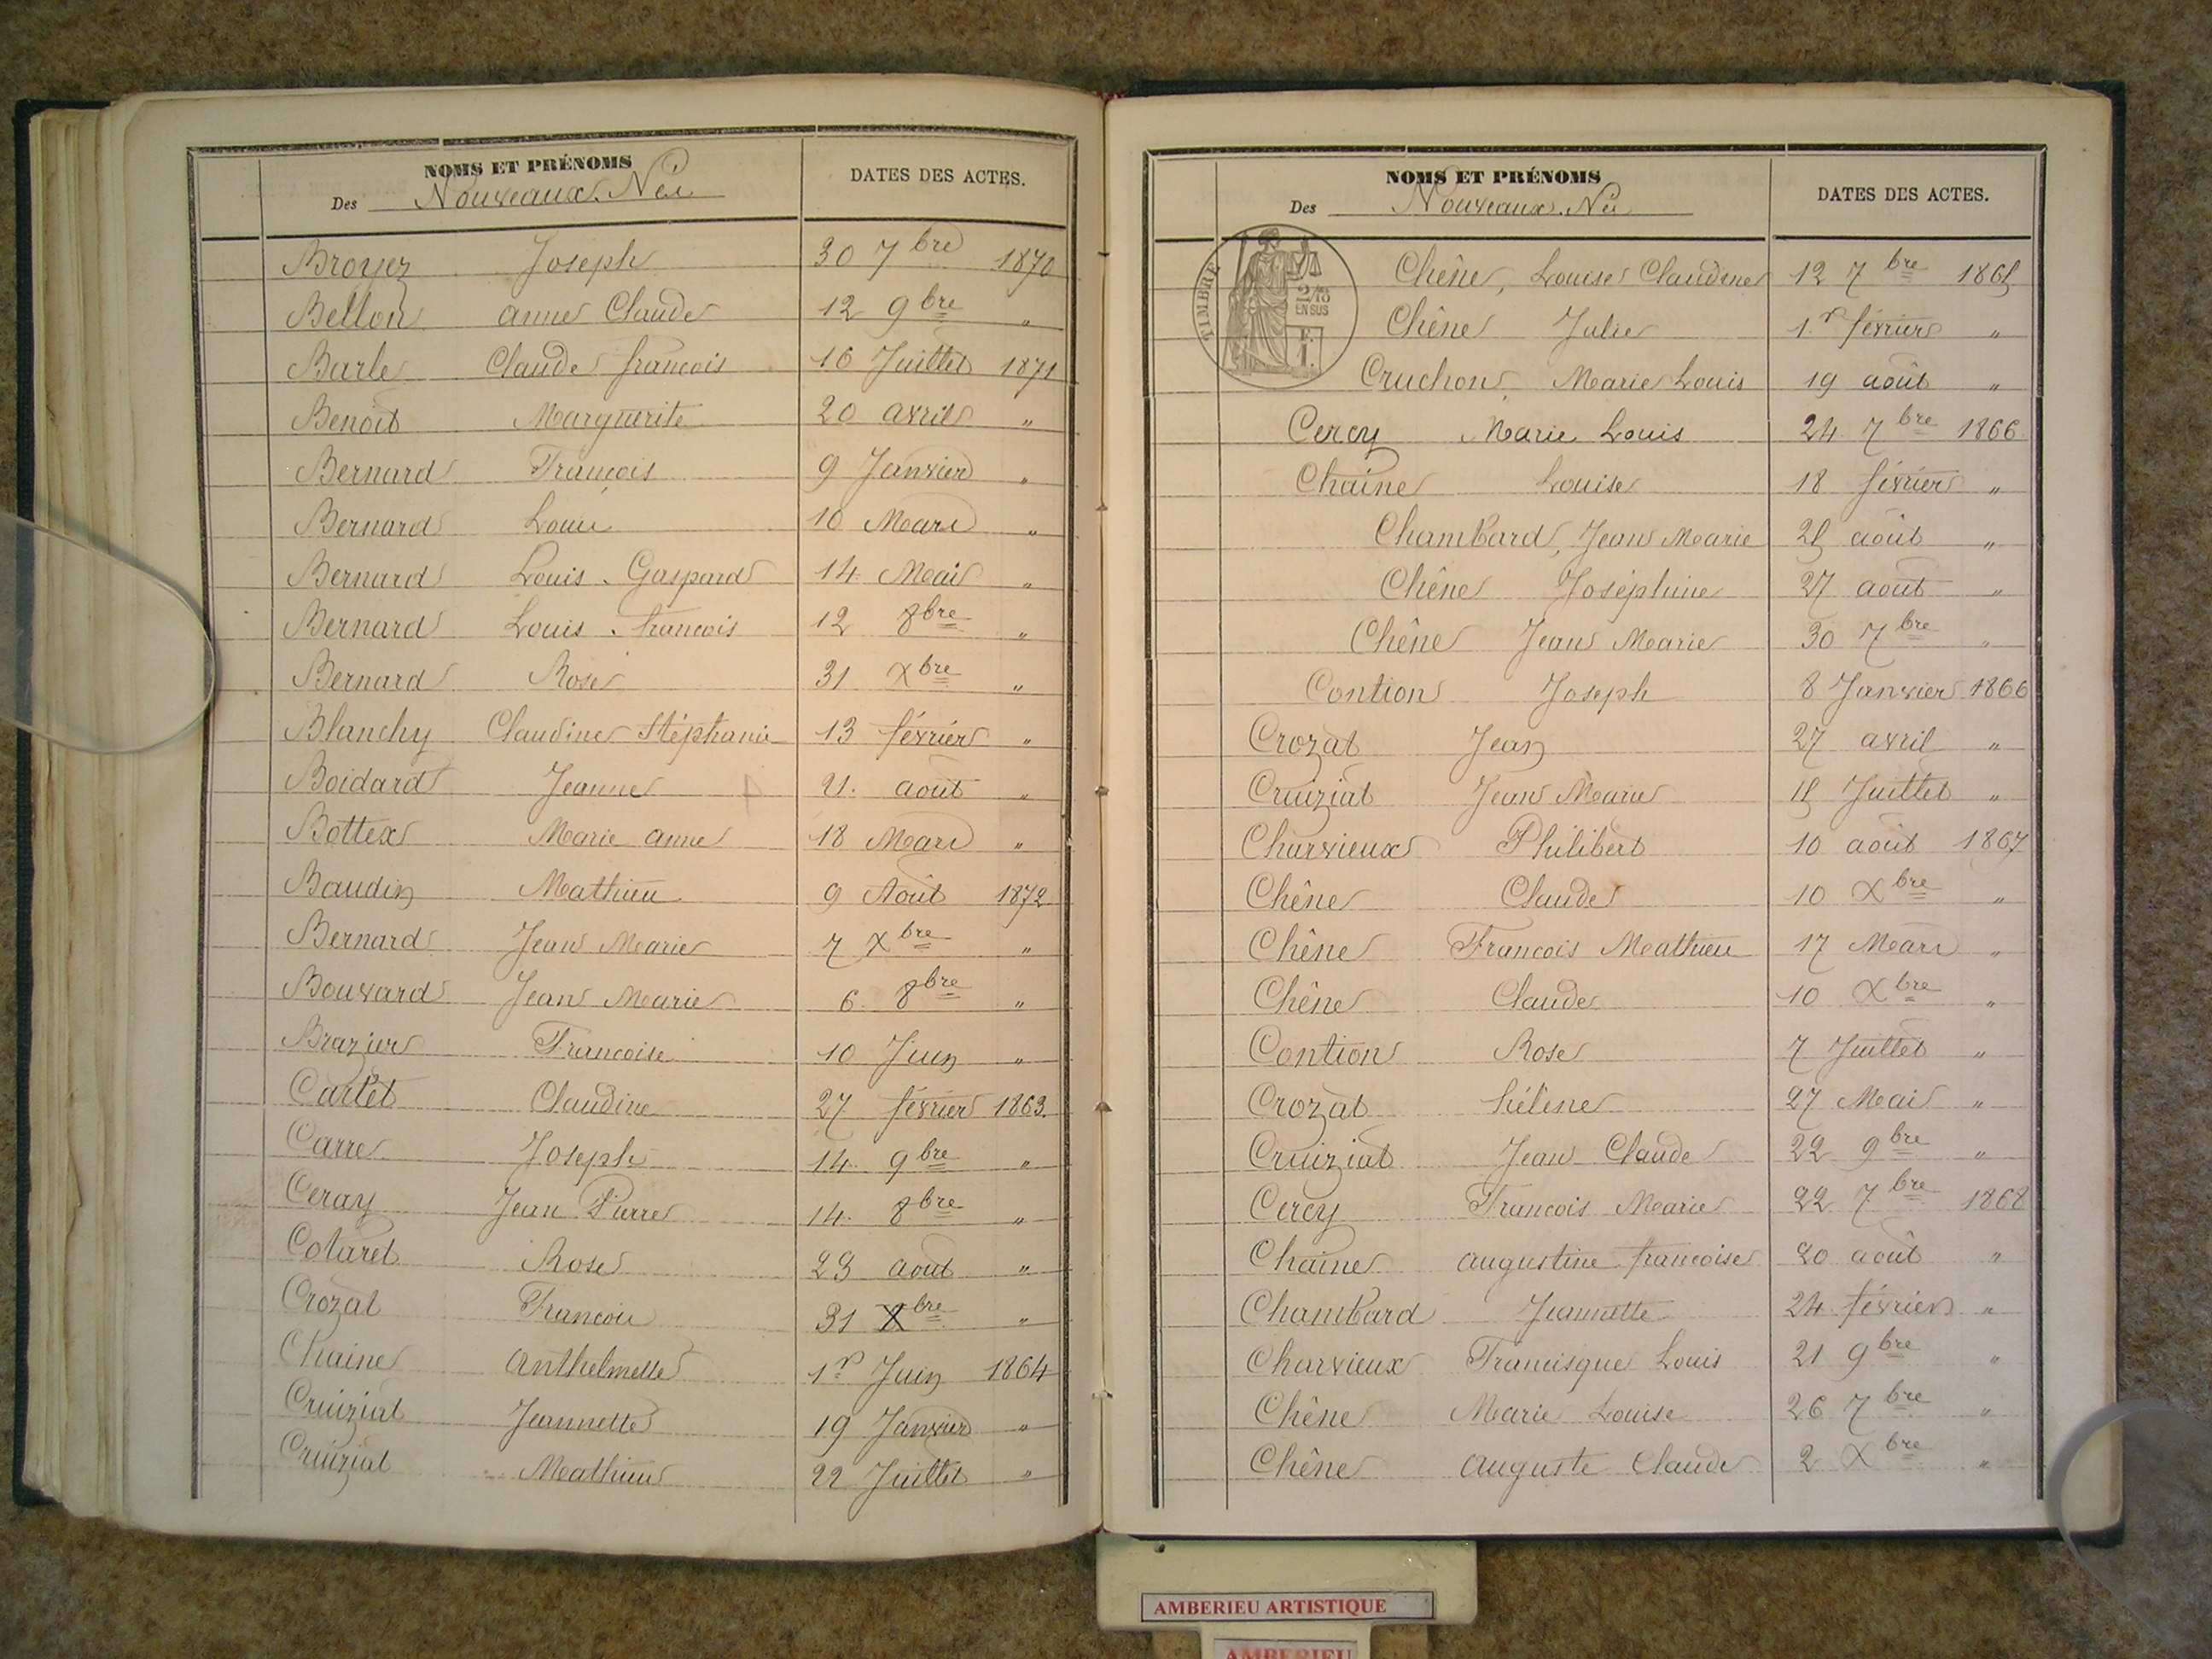 NOMS ET PRÉNOMS
Des Nouveaux Nés
DATES DES ACTES.
Broyer Joseph 30 7bre 1870
Bellon anne Claude 12 9bre "
Barle Claude françois 16 Juillet 1871
Benoit Marguerite 20 avril "
Bernard François 9 Janvier "
Bernard Louis 10 Mars "
Bernard Louis Gaspard 14 Mai "
Bernard Louis françois 12 8bre "
Bernard Rose 31 Xbre "
Blanchy Claudine Stéphanie 13 février "
Boidard Jeanne 21 août "
Bottex Marie anne 18 Mars "
Baudin Mathieu 9 Août 1872
Bernard Jean Marie 7 Xbre "
Bouvard Jean Marie 6 8bre "
Brazier Françoise 10 Juin "
Cartet Claudine 27 février 1863
Carre Joseph 14 9bre "
Jean Pierre 14 8bre "
Cotaret Rose 23 août "
Crozat François 31 Xbre "
Chaine Anthelmette 1er Juin 1864
Cruiziat Jeannette 19 Janvier "
Cruiziat Mathieu 22 Juillet "
NOMS ET PRÉNOMS
Des Nouveaux Nés
DATES DES ACTES.
TIMBRE
2/10
EN SUS
Chêne, Louise Claudine 12 7bre 1865
Chêne Julie 1er février "
Cruchon, Marie Louis 19 août "
Cercy Marie Louis 24 7bre 1866
Chaine Louise 18 février "
Chambard, Jean Marie 25 août "
Chêne Joséphine 27 août "
Chêne Jean Marie 30 7bre "
Contion Joseph 8 Janvier 1866
Crozat Jean 27 avril "
Cruiziat Jean Marie 15 Juillet "
Charvieux Philibert 10 août 1867
Chêne Claude 10 Xbre "
Chêne François Mathieu 17 Mars "
Chêne Claude 10 Xbre "
Contion Rose 7 Juillet "
Crozat hélène 27 Mai "
Cruiziat Jean Claude 22 9bre "
Cercy François Marie 22 7bre 1868
Chaine augustine françoise 20 août "
Chambard Jeannette 24 février "
Charvieux Francisque Louis 21 9bre "
Chêne Marie Louise 26 7bre "
Chêne auguste Claude 2 Xbre "
AMBERIEU ARTISTIQUE
AMBERIEU